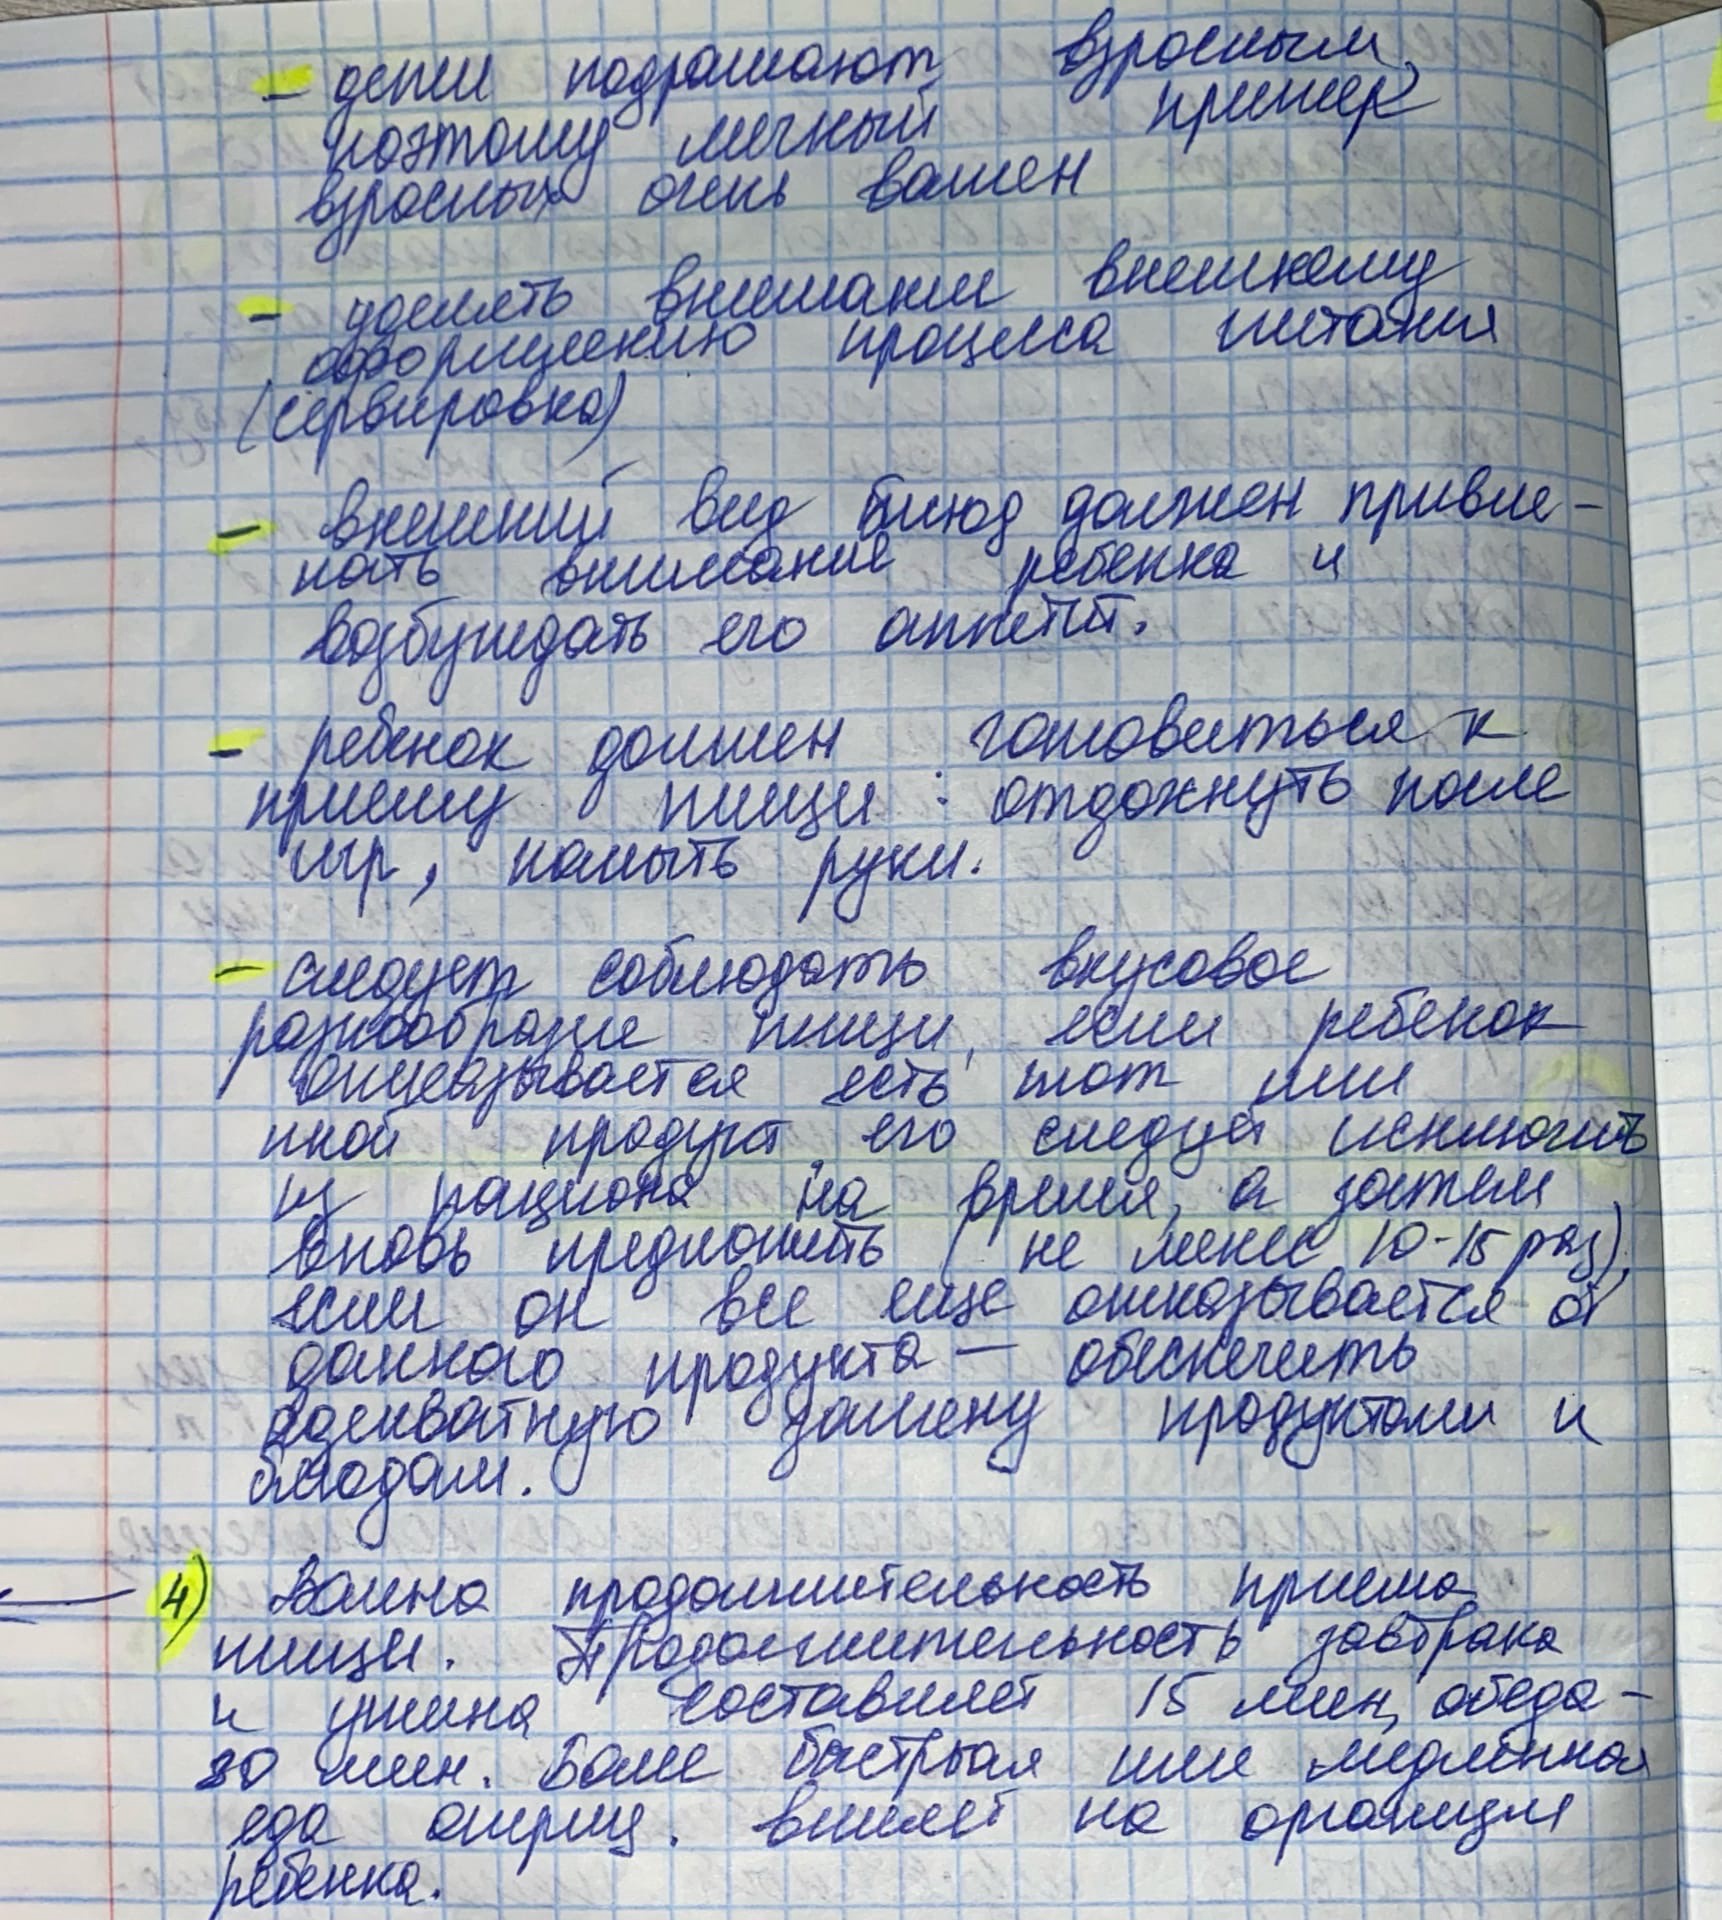 - дети подражают взрослым,
поэтому личный пример
взрослых очень важен
- уделять внимание внешнему
оформлению процесса питания
(сервировка)
- внешний вид блюд должен привле-
кать внимание ребенка и
возбуждать его аппетит.
- ребенок должен готовиться к
приему пищи : отдохнуть после
игр, помыть руки.
- следует соблюдать вкусовое
разнообразие пищи, если ребенок
отказывается есть тот или
иной продукт, его следует исключить
из рациона на время, а затем
вновь предложить (не менее 10-15 раз),
если он все еще отказывается от
данного продукта — обеспечить
адекватную замену продуктами и
блюдам.
4) Важна продолжительность приема
пищи. Продолжительность завтрака
и ужина составляет 15 мин, обеда -
30 мин. Более быстрая или медленная
еда отриц. влияет на организм
ребенка.